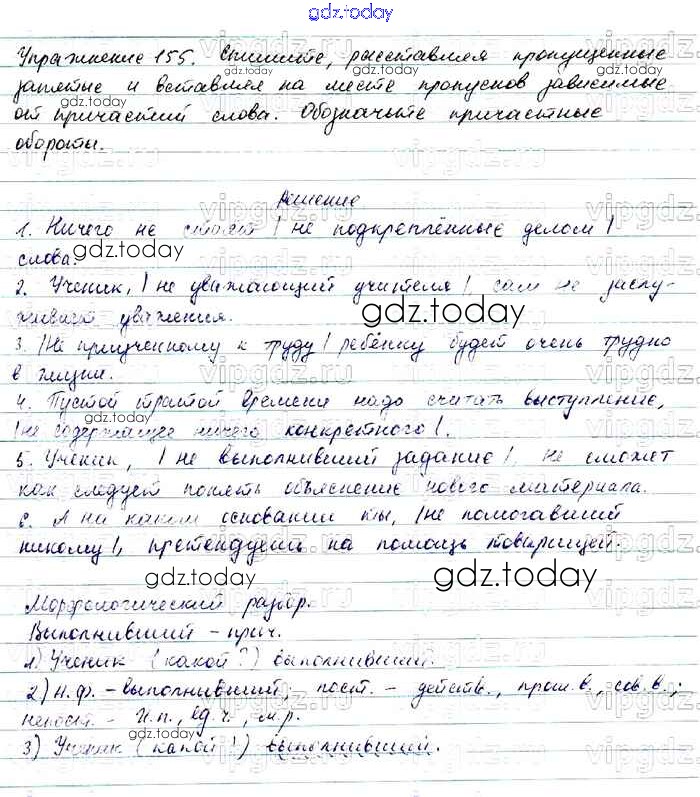 gdz.today
Упражнение 155. Спишите, расставляя пропущенные
запятые и вставляя на месте пропусков зависимые
от причастий слова. Обозначьте причастные
обороты.
Решение
1. Ничего не стоят | не подкреплённые делом |
слова.
2. Ученик, | не уважающий учителя |, сам не заслу-
живает уважения.
3. | Не приученному к труду | ребёнку будет очень трудно
в жизни.
4. Пустой тратой времени надо считать выступление,
| не содержащее ничего конкретного |.
5. Ученик, | не выполнивший задание |, не сможет
как следует понять объяснение нового материала.
6. А на каком основании ты, | не помогавший
никому |, претендуешь на помощь товарищей.
Морфологический разбор.
Выполнивший – прич.
1) Ученик (какой?) выполнивший.
2) Н.ф. – выполнивший; пост. – действ., прош.в., сов.в.;
непост. – И.п., ед.ч., м.р.
3) Ученик (какой?) выполнивший.